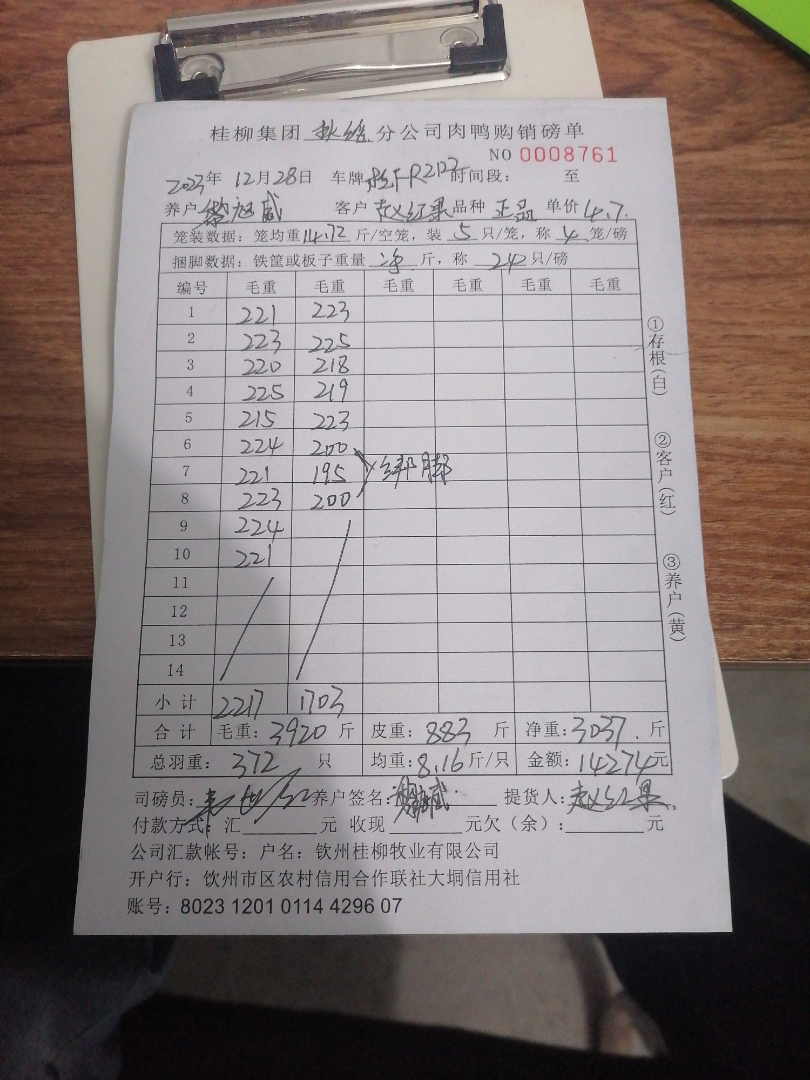 桂柳集团 分公司肉鸭购销磅单
NO 0008761
2023年 12月28日 车牌 R2122 时间段： 至
养户 黎旭威 客户 赵红果 品种 正品 单价 4.7
笼装数据：笼均重14.72斤/空笼，装 5 只/笼，称 4 笼/磅
捆脚数据：铁筐或板子重量 净 斤，称 24 只/磅
编号 毛重 毛重 毛重 毛重 毛重 毛重
1 221 223
2 223 225
3 220 218
4 225 219
5 215 223
6 224 200
7 221 195 绑脚
8 223 200
9 224
10 221
11
12
13
14
小计 2217 1703
合计 毛重：3920 斤 皮重：883 斤 净重：3037 斤
总羽重：372 只 均重：8.16斤/只 金额：14274元
司磅员： 养户签名：黎旭威 提货人：赵红果
付款方式：汇 元 收现 元欠（余）： 元
公司汇款帐号：户名：钦州桂柳牧业有限公司
开户行：饮州市区农村信用合作联社大垌信用社
账号：8023 1201 0114 4296 07
①存根（白）
②客户（红）
③养户（黄）